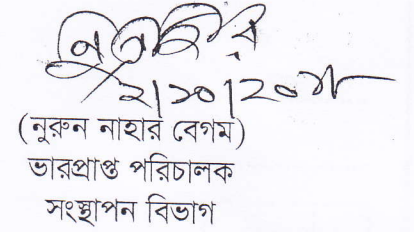 ২/১০/২০১৮
(নুরুন নাহার বেগম)
ভারপ্রাপ্ত পরিচালক
সংস্থাপন বিভাগ